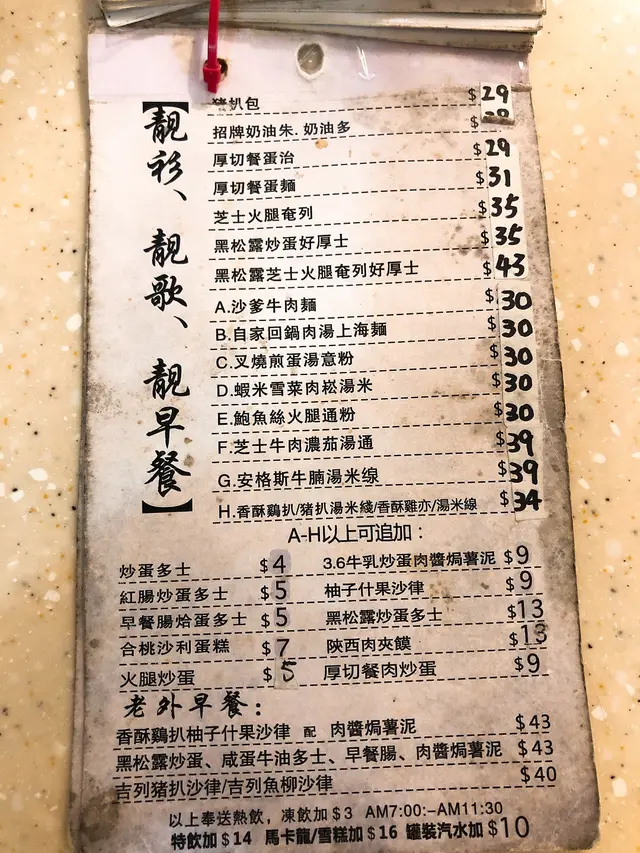 【靚彩、靚歌、靚早餐】
豬扒包 $29
招牌奶油朱. 奶油多 $
厚切餐蛋治 $29
厚切餐蛋麵 $31
芝士火腿奄列 $35
黑松露炒蛋好厚士 $35
黑松露芝士火腿奄列好厚士 $43
A.沙爹牛肉麵 $30
B.自家回鍋肉湯上海麵 $30
C.叉燒煎蛋湯意粉 $30
D.蝦米雪菜肉崧湯米 $30
E.鮑魚絲火腿通粉 $30
F.芝士牛肉濃茄湯通 $39
G.安格斯牛腩湯米線 $39
H.香酥鷄扒/豬扒湯米綫/香酥雞亦/湯米線 $34
A-H以上可追加：
炒蛋多士 $4 3.6牛乳炒蛋肉醬焗薯泥 $9
紅腸炒蛋多士 $5 柚子什果沙律 $9
早餐腸烚蛋多士 $5 黑松露炒蛋多士 $13
合桃沙利蛋糕 $7 陝西肉夾饃 $13
火腿炒蛋 $5 厚切餐肉炒蛋 $9
老外早餐：
香酥鷄扒柚子什果沙律 配 肉醬焗薯泥 $43
黑松露炒蛋、咸蛋牛油多士、早餐腸、肉醬焗薯泥 $43
吉列豬扒沙律/吉列魚柳沙律 $40
以上奉送熱飲，凍飲加$3 AM7:00:–AM11:30
特飲加$14 馬卡龍/雪糕加$16 罐裝汽水加$10